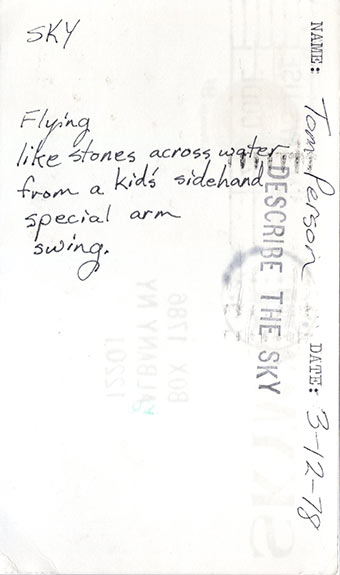 SKY
Flying
like stones across water
from a kid's sidehand
special arm
swing.
DESCRIBE THE SKY
NAME: Tom Person DATE: 3-12-78
BOX 1786
ALBANY NY
12201